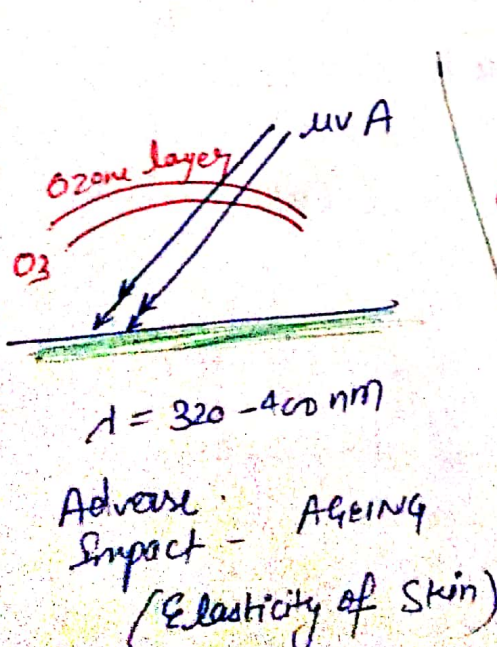 UV A
Ozone layer
O3
λ = 320 - 400 nm
Adverse
Impact - AGEING
(Elasticity of Skin)